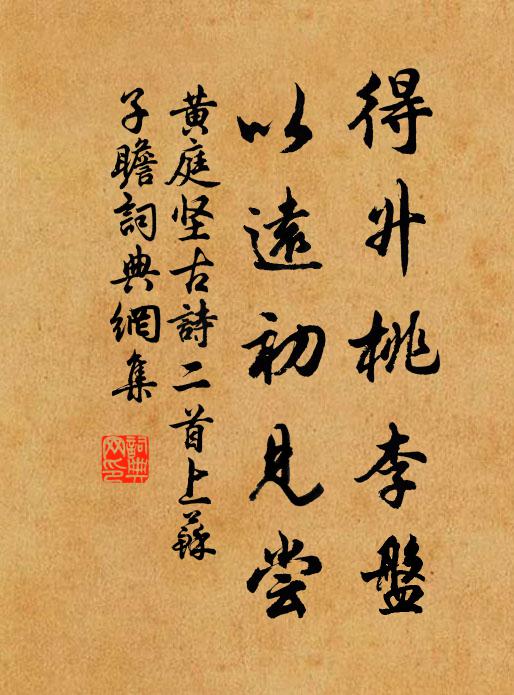 得升桃李盤
以遠初見嘗
黄庭坚古詩二首上蘇
子瞻詞典網集
詞典网印